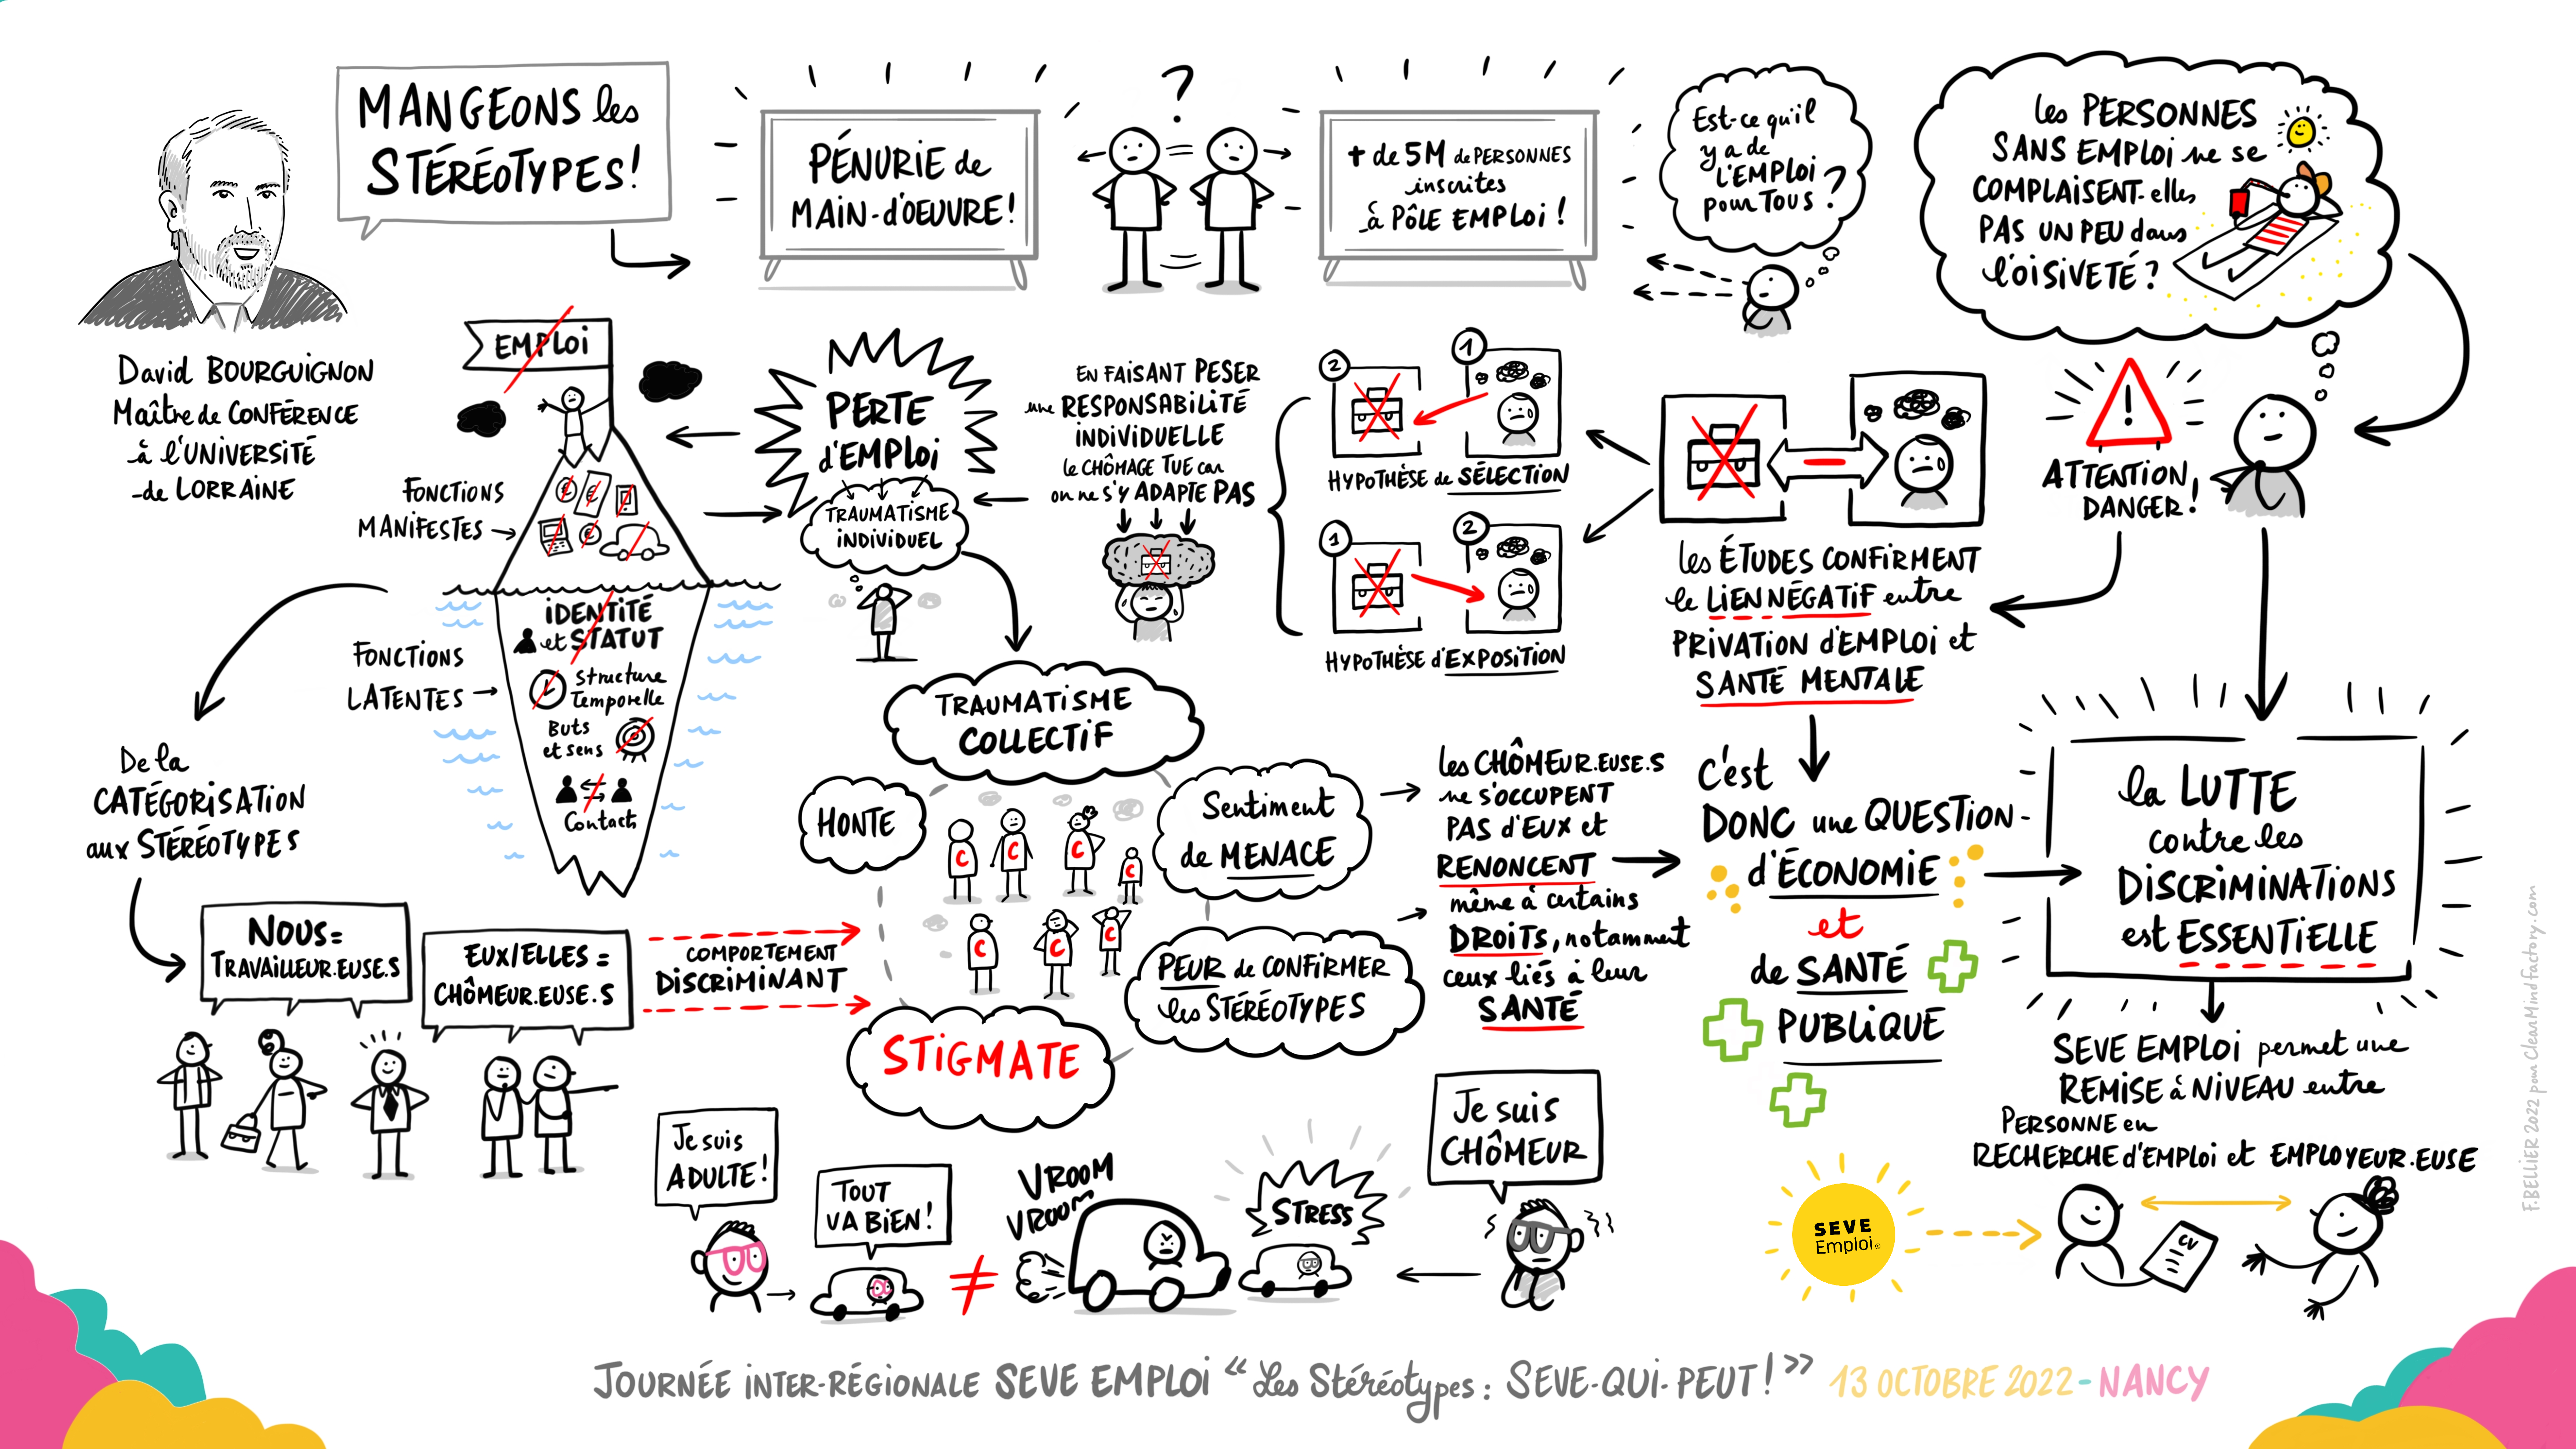 MANGEONS les
STÉRÉOTYPES!
David BOURGUIGNON
Maître de CONFÉRENCE
à l'UNIVERSITÉ
de LORRAINE
PÉNURIE de
MAIN-d'OEUVRE!
?
+ de 5M de PERSONNES
inscrites
à PÔLE EMPLOI!
Est-ce qu'il
y a de
l'EMPLOI
pour TOUS?
les PERSONNES
SANS EMPLOI ne se
COMPLAISENT-elles
PAS UN PEU dans
l'OISIVETÉ?
ATTENTION
DANGER!
!
les ÉTUDES CONFIRMENT
le LIEN NÉGATIF entre
PRIVATION d'EMPLOI et
SANTÉ MENTALE
2
1
HYPOTHÈSE de SÉLECTION
1
2
HYPOTHÈSE d'EXPOSITION
EN FAISANT PESER
une RESPONSABILITÉ
INDIVIDUELLE
le CHÔMAGE TUE car
on ne s'y ADAPTE PAS
PERTE
d'EMPLOI
TRAUMATISME
INDIVIDUEL
EMPLOI
FONCTIONS
MANIFESTES
€
€
€
FONCTIONS
LATENTES
IDENTITÉ
et STATUT
Structure
Temporelle
Buts
et sens
Contacts
De la
CATÉGORISATION
aux STÉRÉOTYPES
NOUS =
TRAVAILLEUR.EUSE.S
EUX/ELLES =
CHÔMEUR.EUSE.S
COMPORTEMENT
DISCRIMINANT
TRAUMATISME
COLLECTIF
HONTE
C
C
C
C
C
C
C
Sentiment
de MENACE
PEUR de CONFIRMER
les STÉRÉOTYPES
STIGMATE
les CHÔMEUR.EUSE.S
ne S'OCCUPENT
PAS d'EUX et
RENONCENT
même à certains
DROITS, notamment
ceux liés à leur
SANTÉ
c'est
DONC une QUESTION
d'ÉCONOMIE
et
de SANTÉ
PUBLIQUE
la LUTTE
contre les
DISCRIMINATIONS
est ESSENTIELLE
SEVE EMPLOI permet une
REMISE à NIVEAU entre
PERSONNE en
RECHERCHE d'EMPLOI et EMPLOYEUR.EUSE
SEVE
Emploi®
CV
Je suis
ADULTE!
TOUT
VA BIEN!
≠
VROOM
VROOM
STRESS
Je suis
CHÔMEUR
JOURNÉE INTER-RÉGIONALE SEVE EMPLOI "Les Stéréotypes : SEVE-QUI-PEUT!" 13 OCTOBRE 2022 - NANCY
F.BELLIER 2022 pour CleanMindfactory.com